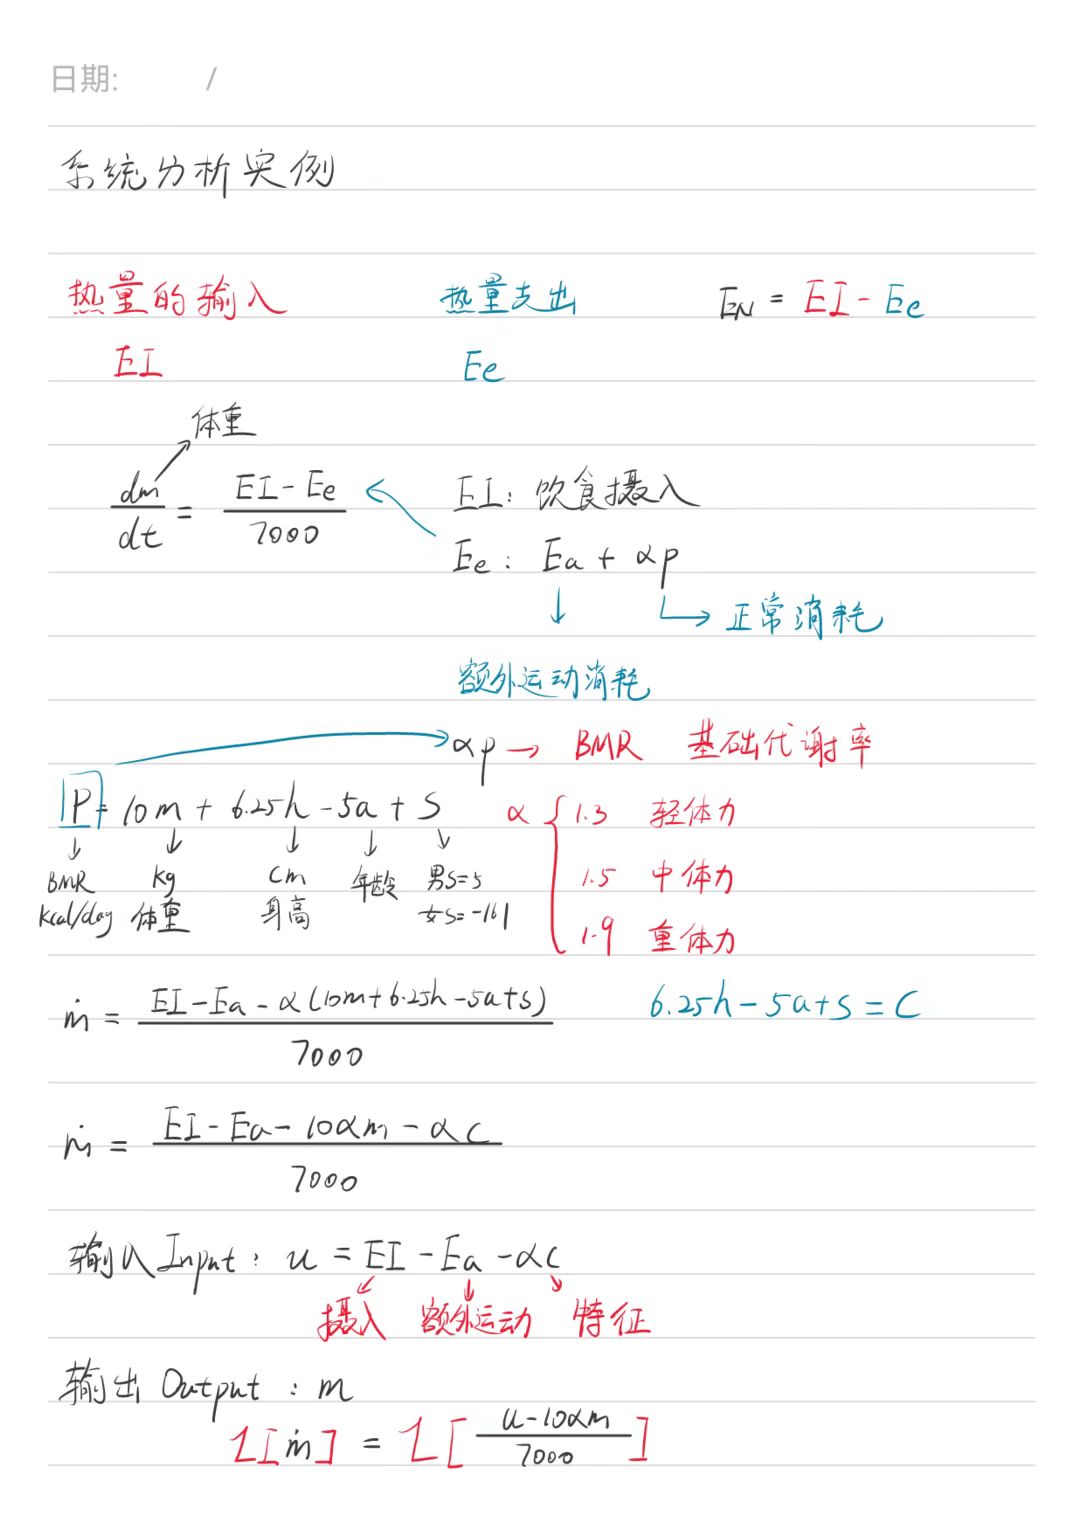 日期: /
系统分析实例
热量的输入 热量支出 EN = EI - Ee
EI Ee
体重
dm/dt = (EI - Ee)/7000 EI: 饮食摄入
Ee: Ea + αp
正常消耗
额外运动消耗
αp → BMR 基础代谢率
P = 10m + 6.25h - 5a + S α { 1.3 轻体力
BMR kg cm 年龄 男S=5 1.5 中体力
kcal/day 体重 身高 女S=-161 1.9 重体力
ṁ = (EI - Ea - α(10m + 6.25h - 5a + s))/7000 6.25h - 5a + s = C
ṁ = (EI - Ea - 10αm - αC)/7000
输入 Input: u = EI - Ea - αC
摄入 额外运动 特征
输出 Output: m
L[ṁ] = L[(u - 10αm)/7000]